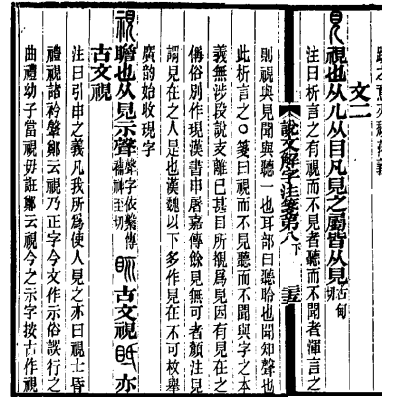 文二
見視也从儿从目凡見之屬皆从見古甸切
注曰析言之有視而不見者聽而不聞者渾言之
說文解字注箋第八下
則視與見聞與聽一也耳部曰聽聆也聞知聲也
此析言之○箋曰視而不見聽而不聞與字之本
義無涉段說支離已甚目所覩為見因有見在之
偁俗別作現漢書申屠嘉傳餘見無可者顏注見
謂見在之人是也漢魏以下多作見在不可枚舉
廣韵始收現字
視瞻也从見示聲
古文視
亦
古文視
注曰引申之義凡我所為使人見之亦曰視士昏
禮視諸衿鞶鄭云視乃正字今文作示俗誤行之
曲禮幼子常視毋誑鄭云視今之示字按古作視